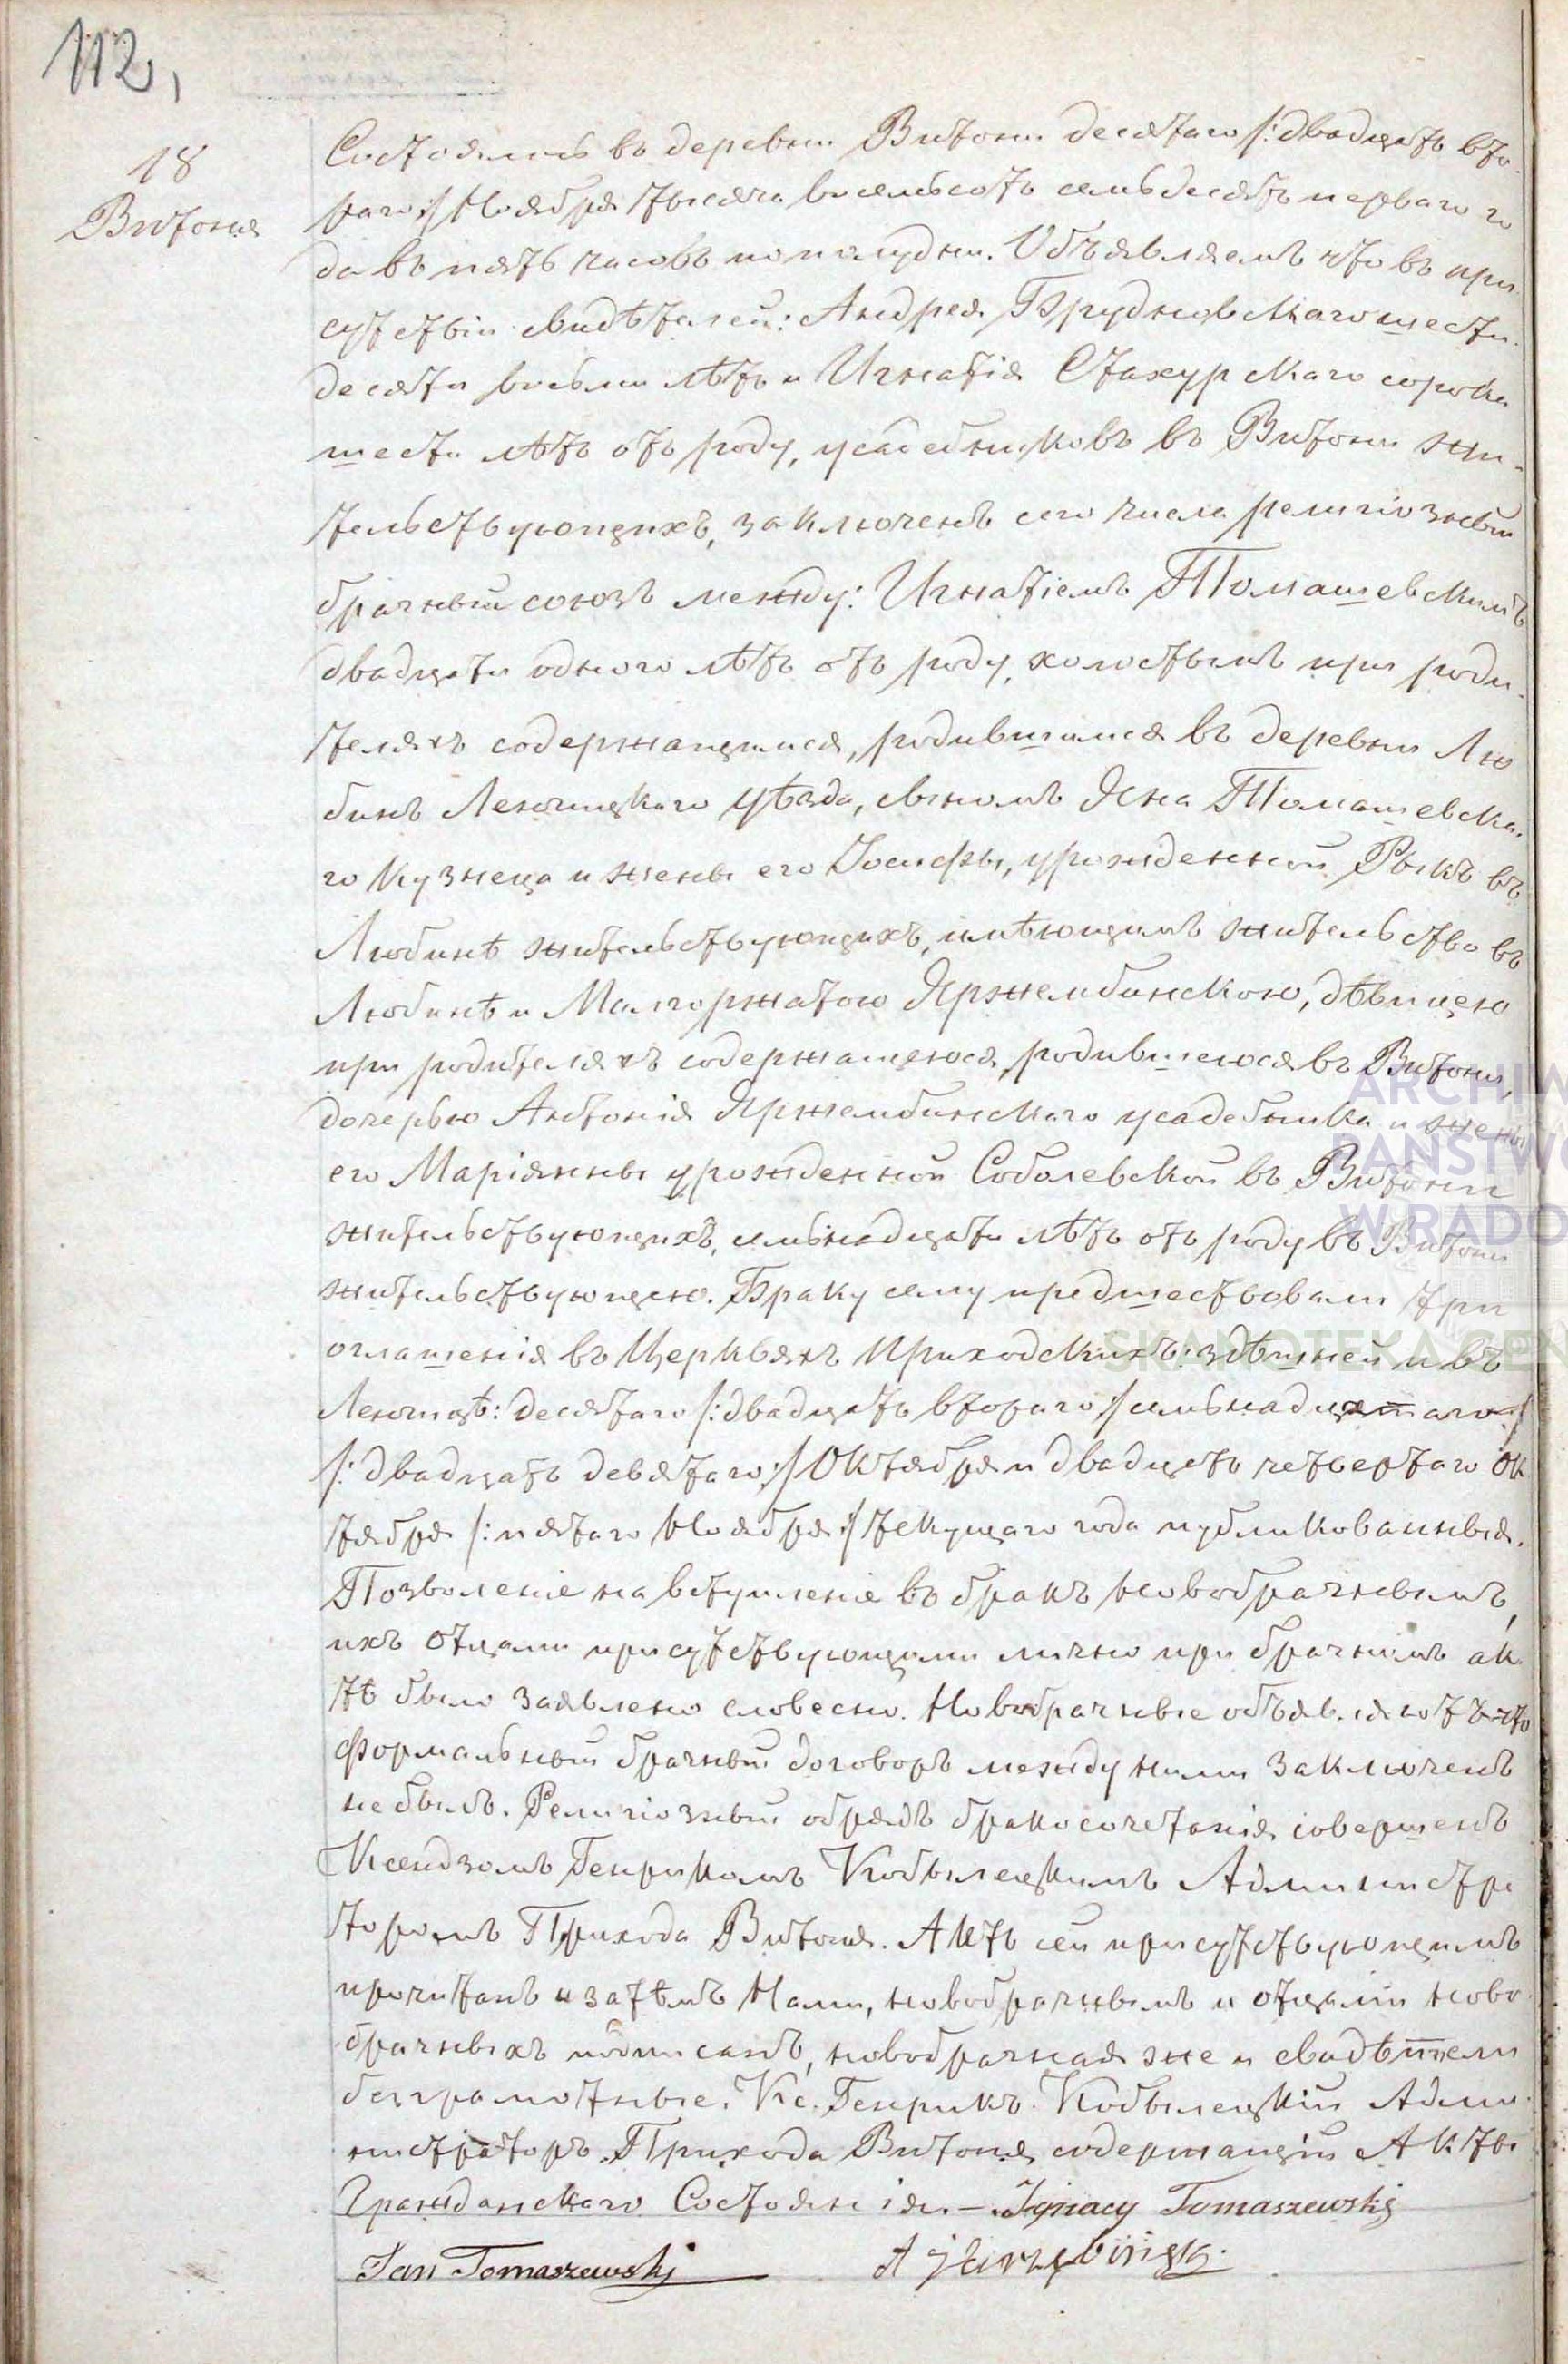 112,
18
Витоня
Состоялось въ деревни Витони десятаго /:двадцать вто-
раго:/ Ноября тысяча восемьсотъ семьдесятъ перваго го
да въ пять часовъ по полудни. Объявляемъ что въ при-
сутствіи свидѣтелей: Андрея Брудновскаго шести-
десяти восьми лѣтъ и Игнатія Стахурскаго сорока
шести лѣтъ отъ роду, усадебниковъ въ Витони жи-
тельствующихъ, заключенъ сего числа религіозный
брачный союзъ между: Игнатіемъ Томашевскимъ
двадцати одного лѣтъ отъ роду, холостымъ при роди-
теляхъ содержащимся, родившимся въ деревни Лю
бинъ Ленчицкаго Уѣзда, сыномъ Яна Томашевска-
го кузнеца и жены его Іосифы, урожденной Рыкъ въ
Любинѣ жительствующихъ, имѣющимъ жительство въ
Любинѣ и Малгоржатою Яржембинскою, дѣвицею
при родителяхъ содержащеюся, родившеюся въ Витони,
дочерью Антонія Яржембинскаго усадебника и жены
его Маріянны урожденной Соболевской въ Витони
жительствующихъ, семьнадцати лѣтъ отъ роду въ Витони
жительствующею. Браку сему предшествовали три
оглашенія въ Церквяхъ Приходскихъ: здѣшней и въ
Ленчицѣ: десятаго /:двадцать втораго:/ семьнадцатаго
/:двадцать девятаго:/ Октября и двадцать четвертаго Ок
тября /:пятаго Ноября:/ текущаго года публикованныя.
Позволеніе на вступленіе въ бракъ Новобрачнымъ,
ихъ отцами присутствующими лично при брачномъ ак-
тѣ было заявлено словесно. Новобрачные объявляютъ что
формальный брачный договоръ между ними заключенъ
не былъ. Религіозный обрядъ бракосочетанія совершенъ
Ксендзомъ Генрикомъ Кобылецкимъ Администра
торомъ Прихода Витоня. Актъ сей присутствующимъ
прочитанъ и затѣмъ Нами, новобрачнымъ и отцами ново-
брачныхъ подписанъ, новобрачная же и свидѣтели
безграмотные. Кс. Генрикъ Кобылецкій Адми-
нистраторъ Прихода Витоня содержащій Акты
Гражданскаго Состоянія. — Ignacy Tomaszewski
Jan Tomaszewski A Jarzębińsk.
ARCHIW
PAŃSTWO
W RADO
SKANOTEKA GEN